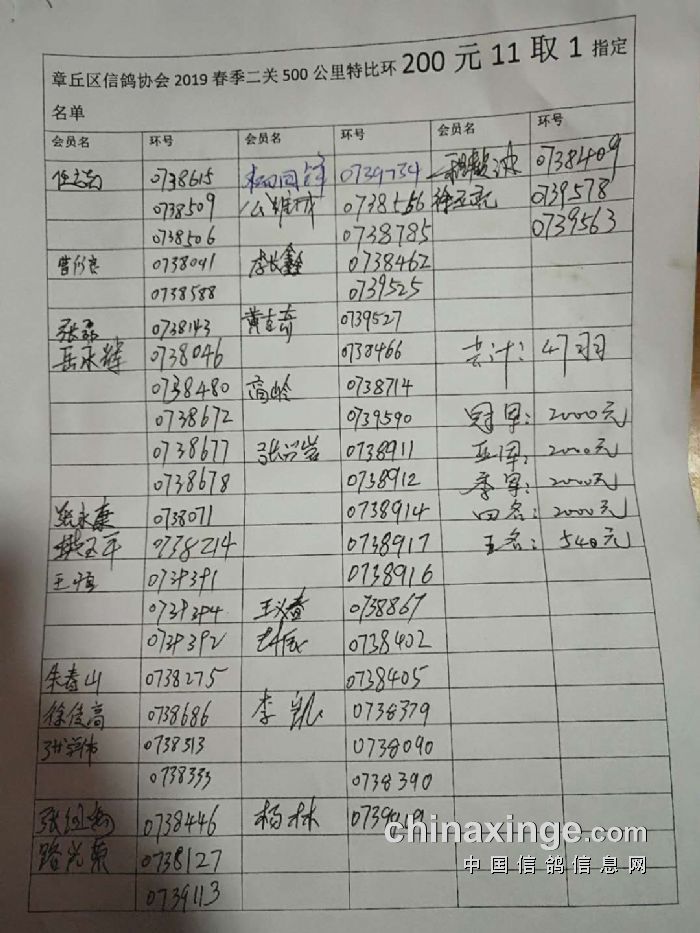 章丘区信鸽协会2019春季二关500公里特比环200元11取1指定
名单
会员名 环号 会员名 环号 会员名 环号
0738615 0739734 0738409
0738509 0738566 0739578
0738506 0738785 0739563
0738091 李长鑫 0738462
0738588 0739525
张磊 0738143 0739527
岳永辉 0738046 0738466 共计: 47羽
0738480 高岭 0738714
0738672 0739590 冠军: 2000元
0738677 张兴岩 0738911 亚军: 2000元
0738678 0738912 季军: 2000元
张永康 0738071 0738914 四名: 2000元
0738214 0738917 五名: 540元
王恒 0739391 0738916
0739394 0738867
0739392 0738402
朱春山 0738275 0738405
徐俊高 0738686 李凯 0738379
张学伟 0738313 0738090
0738333 0738390
0738446 杨林 0739019
路光荣 0738127
0739113
chinaxinge.com
中国信鸽信息网